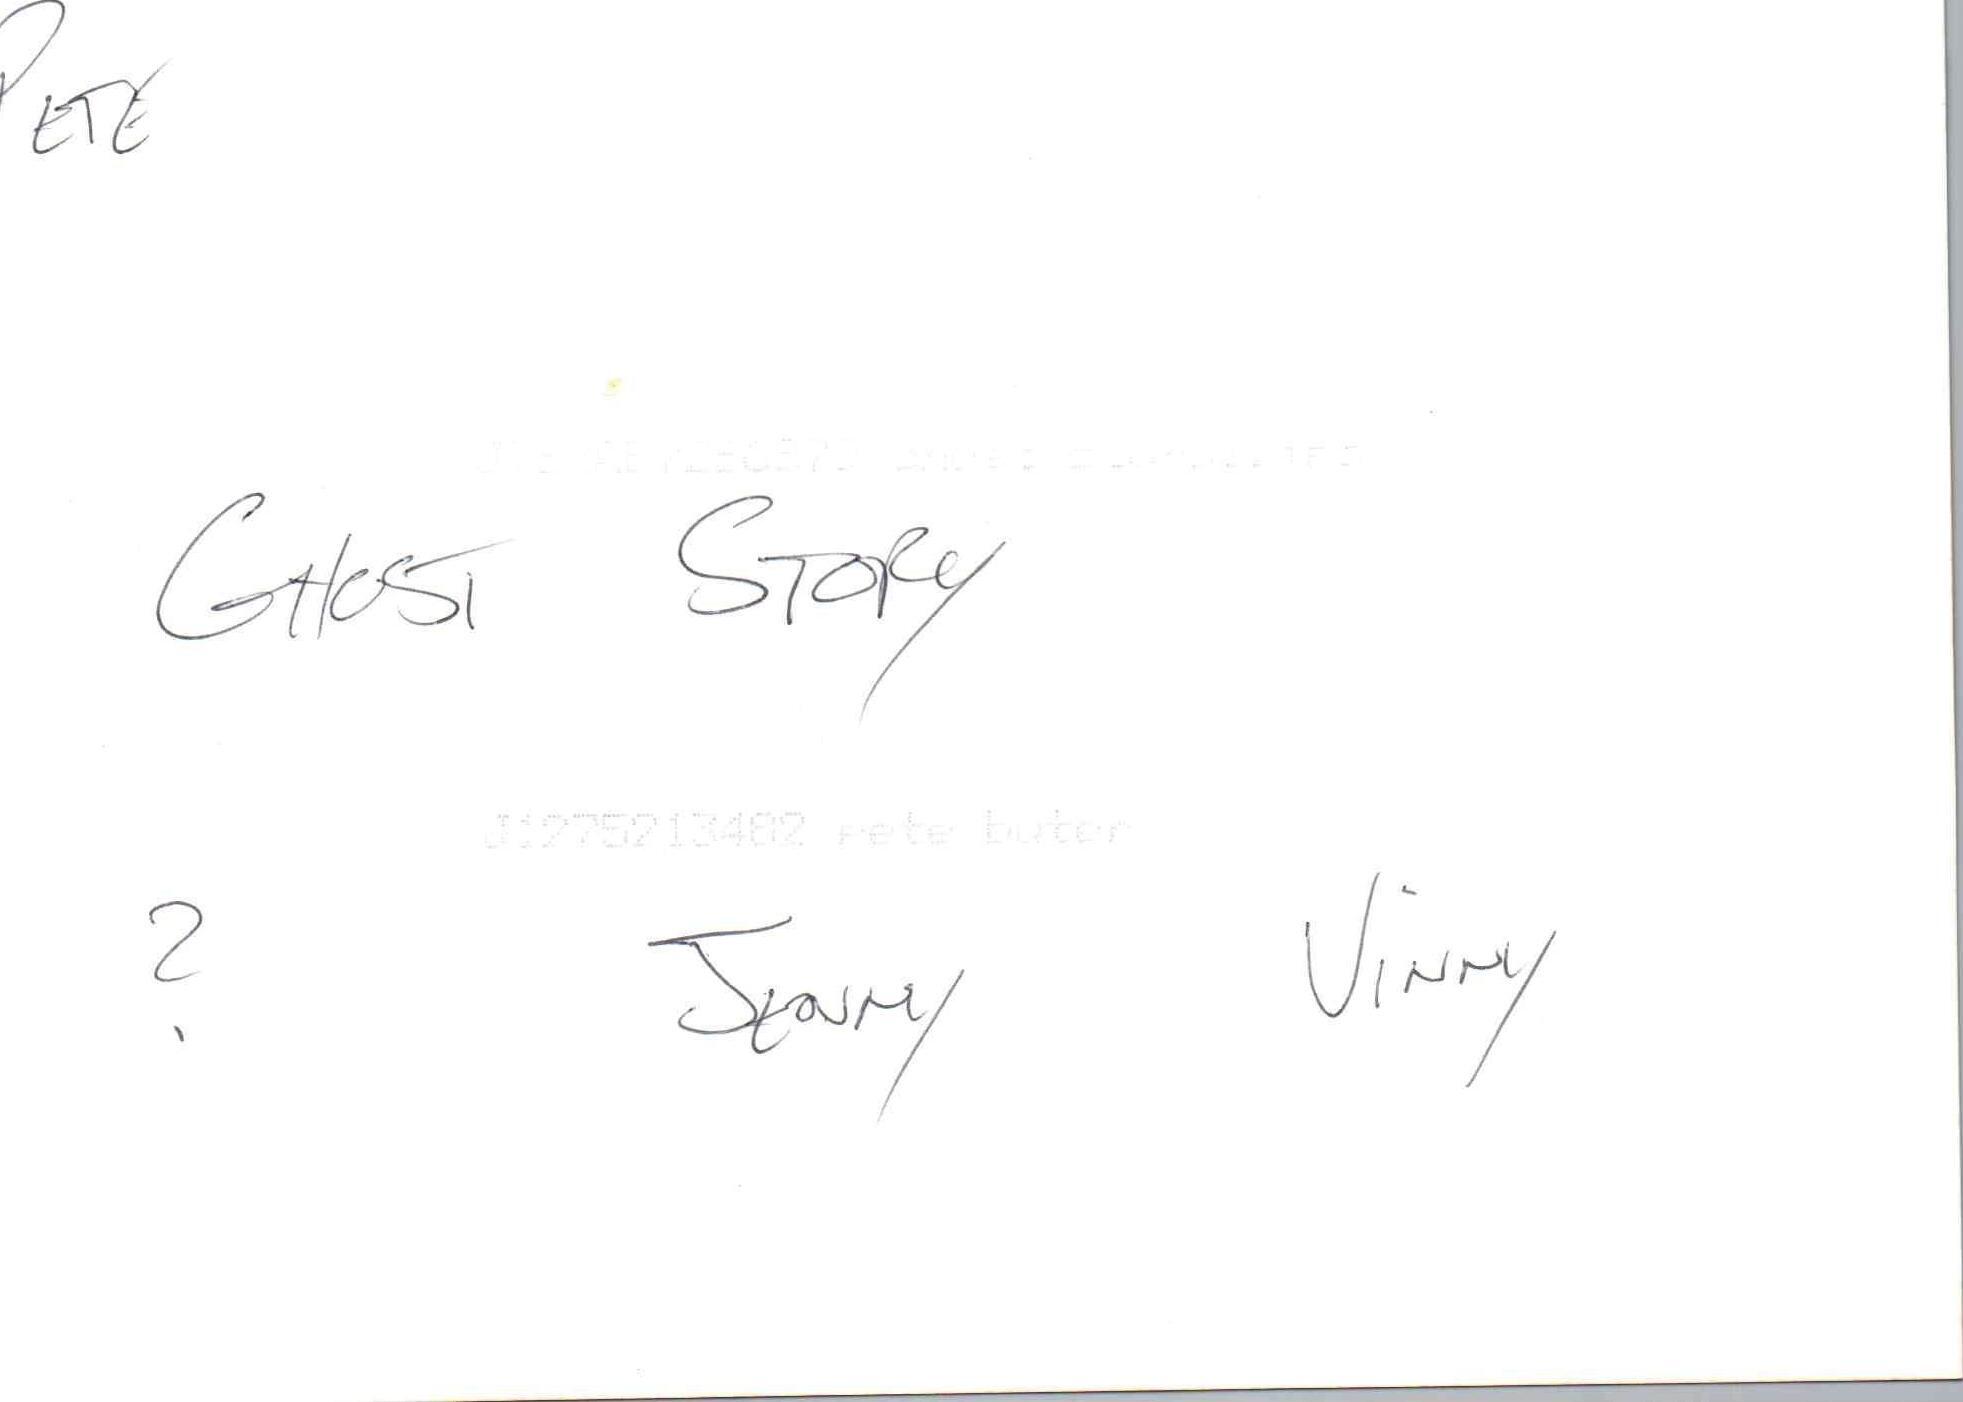 PETE
GHOST STORY
J1275213482 pete buter
? JENNY VINNY